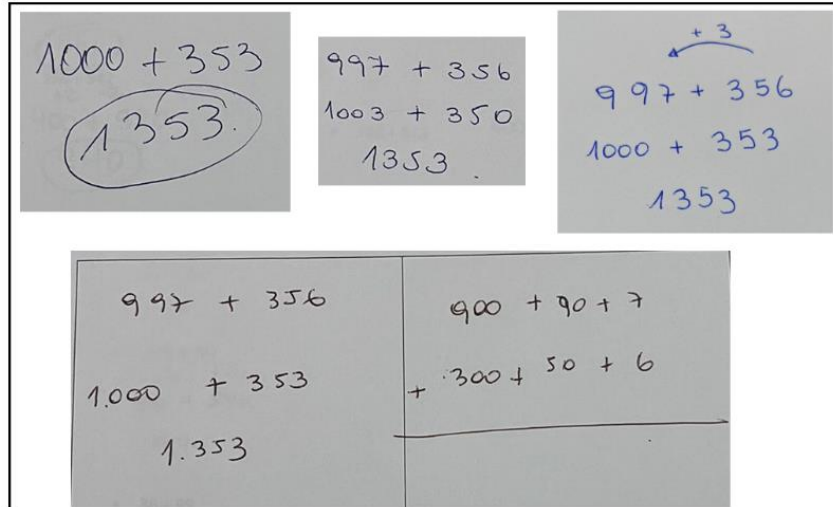 1000 + 353
1353.
997 + 356
1003 + 350
1353.
+ 3
997 + 356
1000 + 353
1353
997 + 356
1.000 + 353
1.353
900 + 90 + 7
+ 300 + 50 + 6